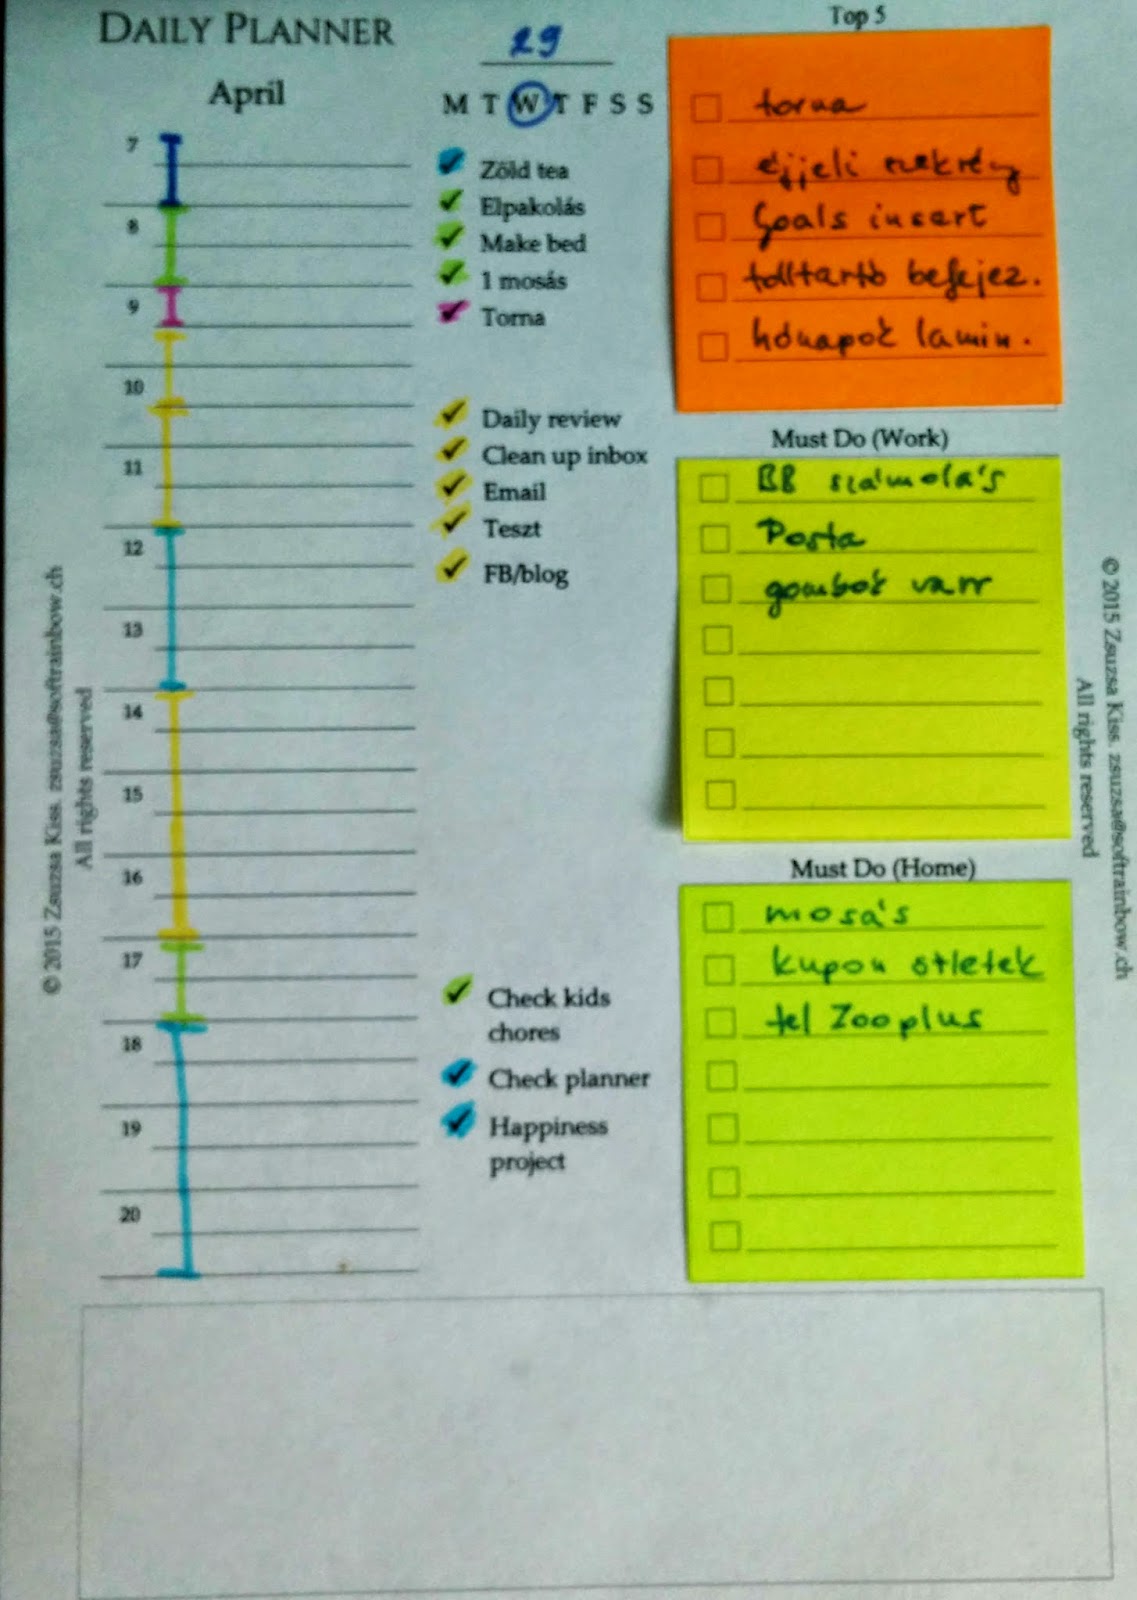 DAILY PLANNER
29
April
M T W T F S S
7
8
9
10
11
12
13
14
15
16
17
18
19
20
Zöld tea
Elpakolás
Make bed
1 mosás
Torna
Daily review
Clean up inbox
Email
Teszt
FB/blog
Check kids
chores
Check planner
Happiness
project
Top 5
torna
éjjeli szekrény
Goals insert
tolltartó befejez.
hónapok lamin.
Must Do (Work)
BB számolás
Posta
gombok varr
Must Do (Home)
mosás
kupon ötletek
tel Zooplus
© 2015 Zsuzsa Kiss. zsuzsa@softrainbow.ch
All rights reserved
© 2015 Zsuzsa Kiss. zsuzsa@softrainbow.ch
All rights reserved